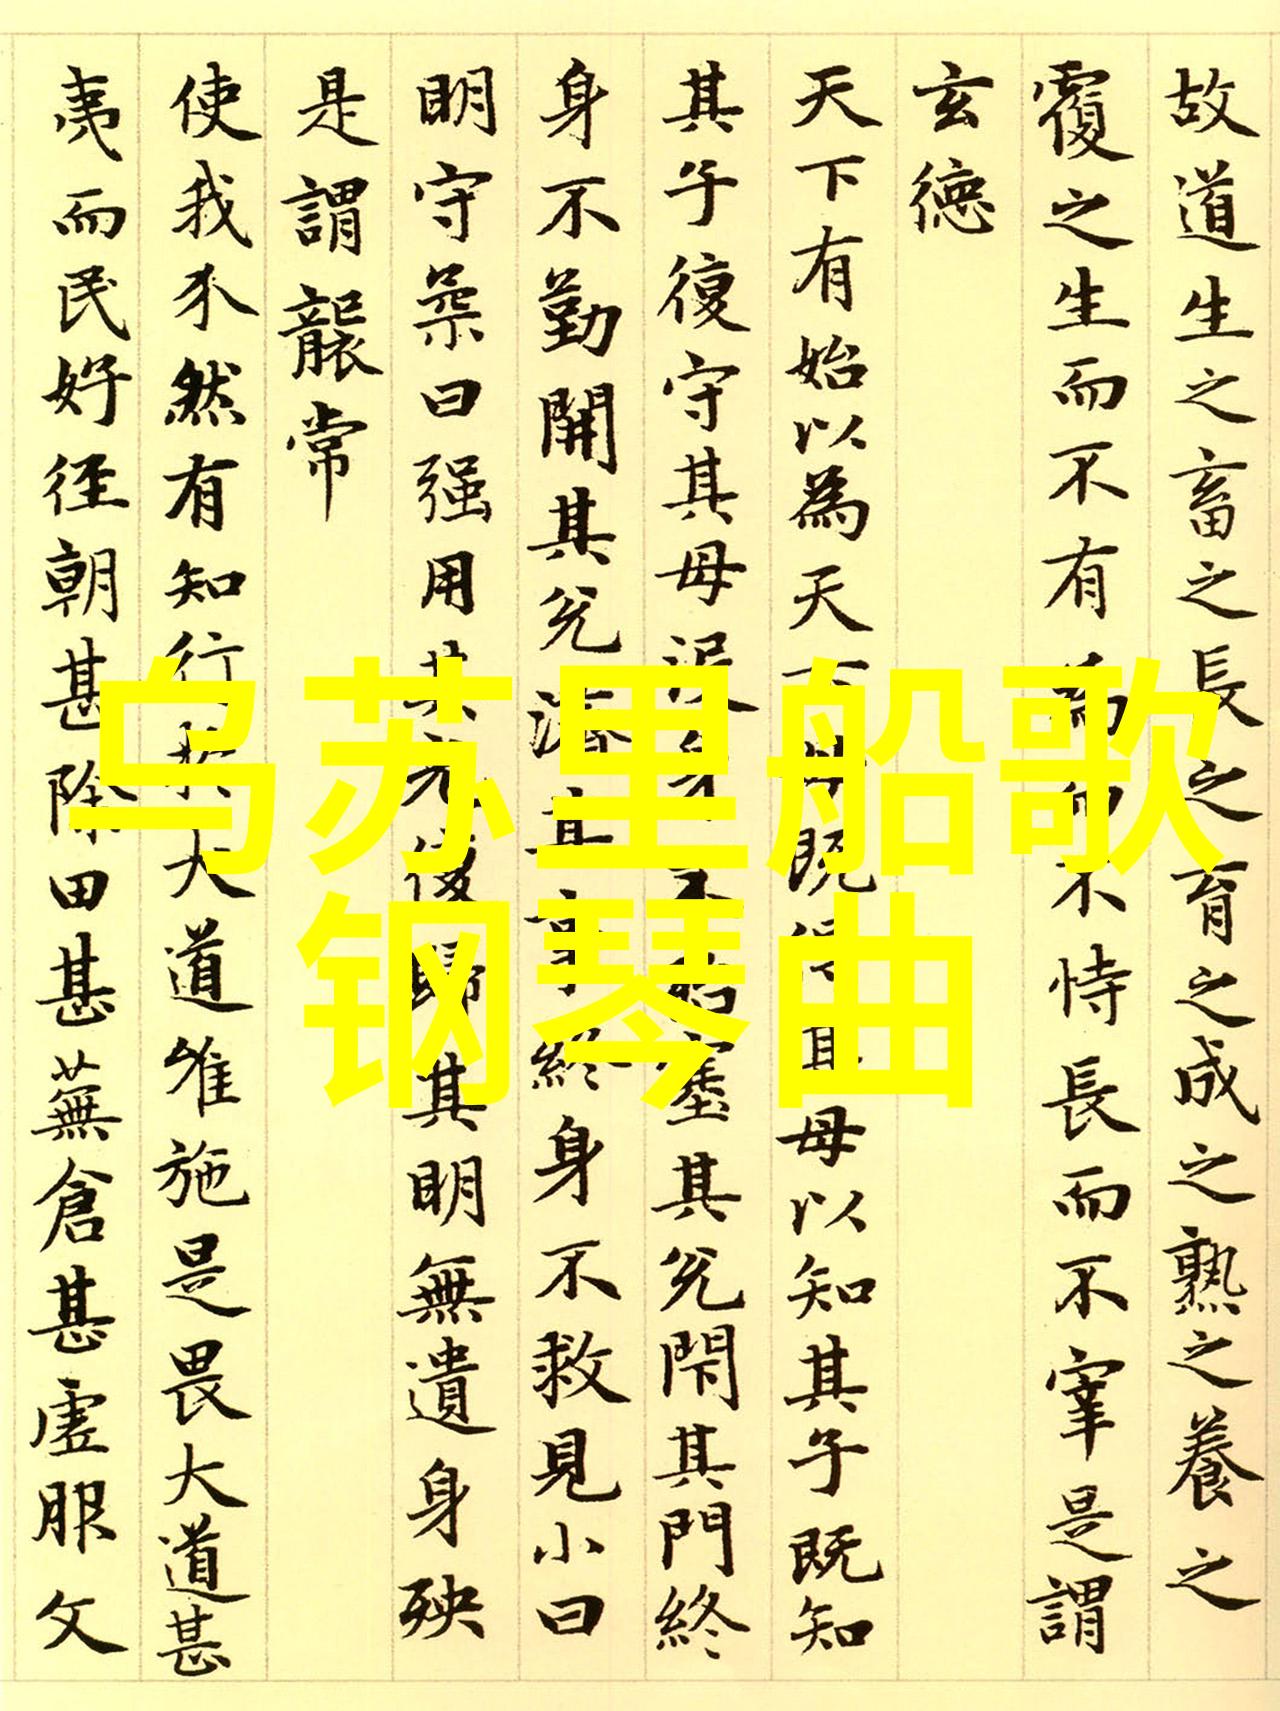 故道生之畜之長之育之成之熟之養之
覆之生而不有為而不恃長而不宰是謂
玄德
天下有始以為天下母既得其母以知其子既知
其子復守其母没身不殆塞其兊閇其門終
身不勤開其兊濟其事終身不救見小曰
明守柔曰强用其光復歸其明無遺身殃
是謂襲常
使我介然有知行於大道唯施是畏大道甚
夷而民好径朝甚除田甚蕪倉甚虛服文
乌苏里船歌
钢琴曲